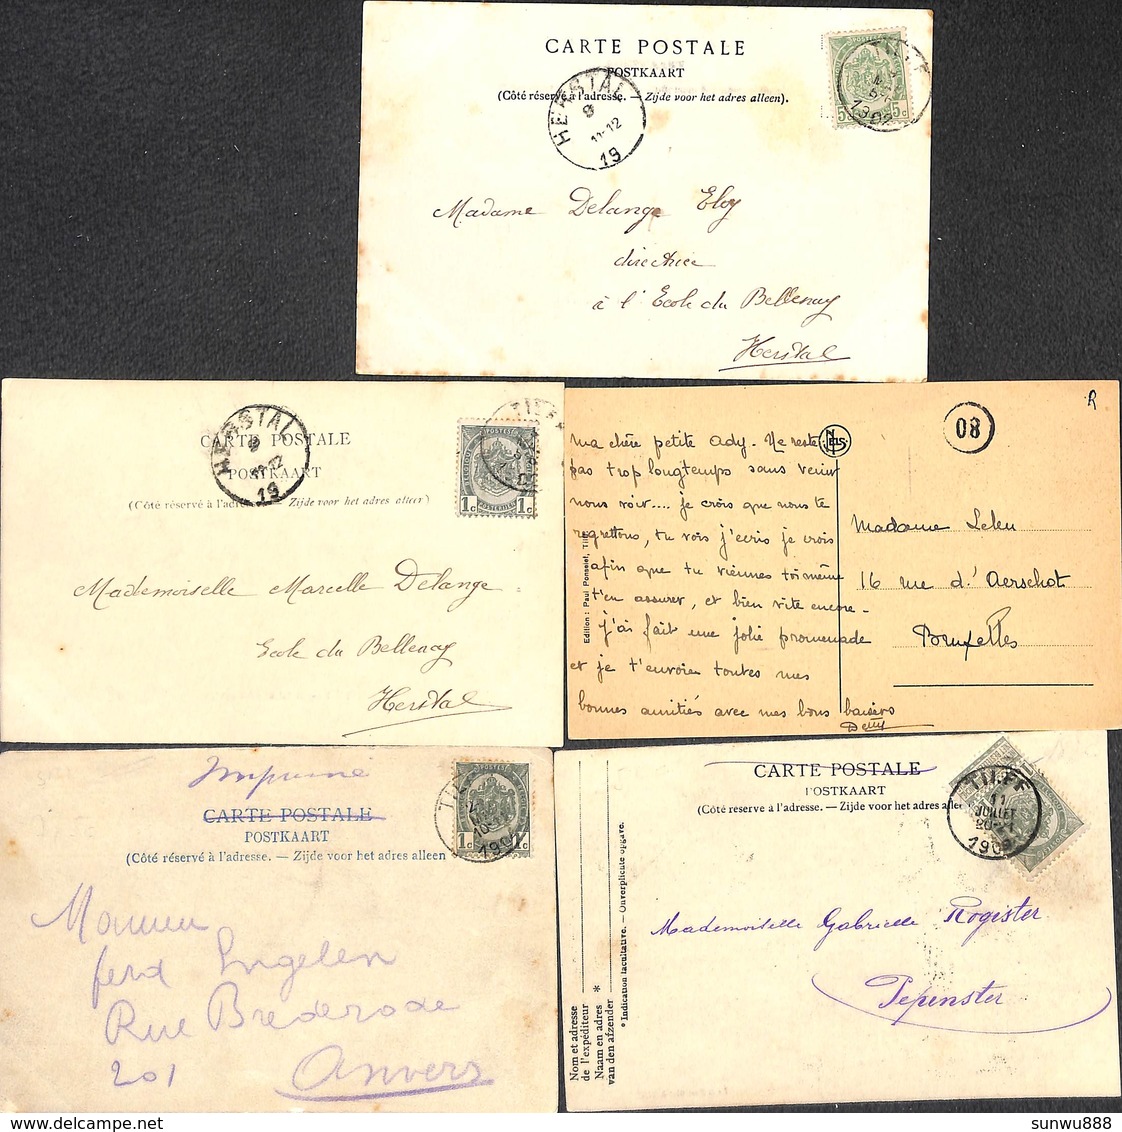 CARTE POSTALE
POSTKAART
(Côté réservé à l'adresse. — Zijde voor het adres alleen).
HERSTAL
9
11-12
19
TILFF
1902
5c 5c
Madame Delange Eloy
directrice
à l'Ecole du Bellenay
Herstal
CARTE POSTALE
POSTKAART
(Côté réservé à l'adre Zijde voor het adres alleen)
HERSTAL
9
11-12
19
1c 1c
Mademoiselle Marcelle Delange
Ecole du Bellenay
Herstal
R
08
NELS
ma chère petite Ady. Ne reste
pas trop longtemps sans venir
nous voir.... je crois que nous te
regrettons, tu vois j'écris je crois
afin que tu viennes toi même
t'en assurer, et bien vite encore.
j'ai fait une jolie promenade
et je t'envoie toutes mes
bonnes amitiés avec mes bons baisers
Edition : Paul Ponselet, Tilff
Madame Leleu
16 rue d'Aerschot
Bruxelles
Imprimé
CARTE POSTALE
POSTKAART
(Côté réservé à l'adresse. — Zijde voor het adres alleen
1c 1c
ferd Engelen
Rue Brederode
201
Anvers
CARTE POSTALE
POSTKAART
(Côté réservé à l'adresse. — Zijde voor het adres aller
TILFF
11
JUILLET
1909
Mademoiselle Gabrielle Rogister
Pepinster
Nom et adresse
de l'expéditeur
Naam en adres *
van den afzender
* Indication facultative. — Onverplichte opgave.
sunwu888